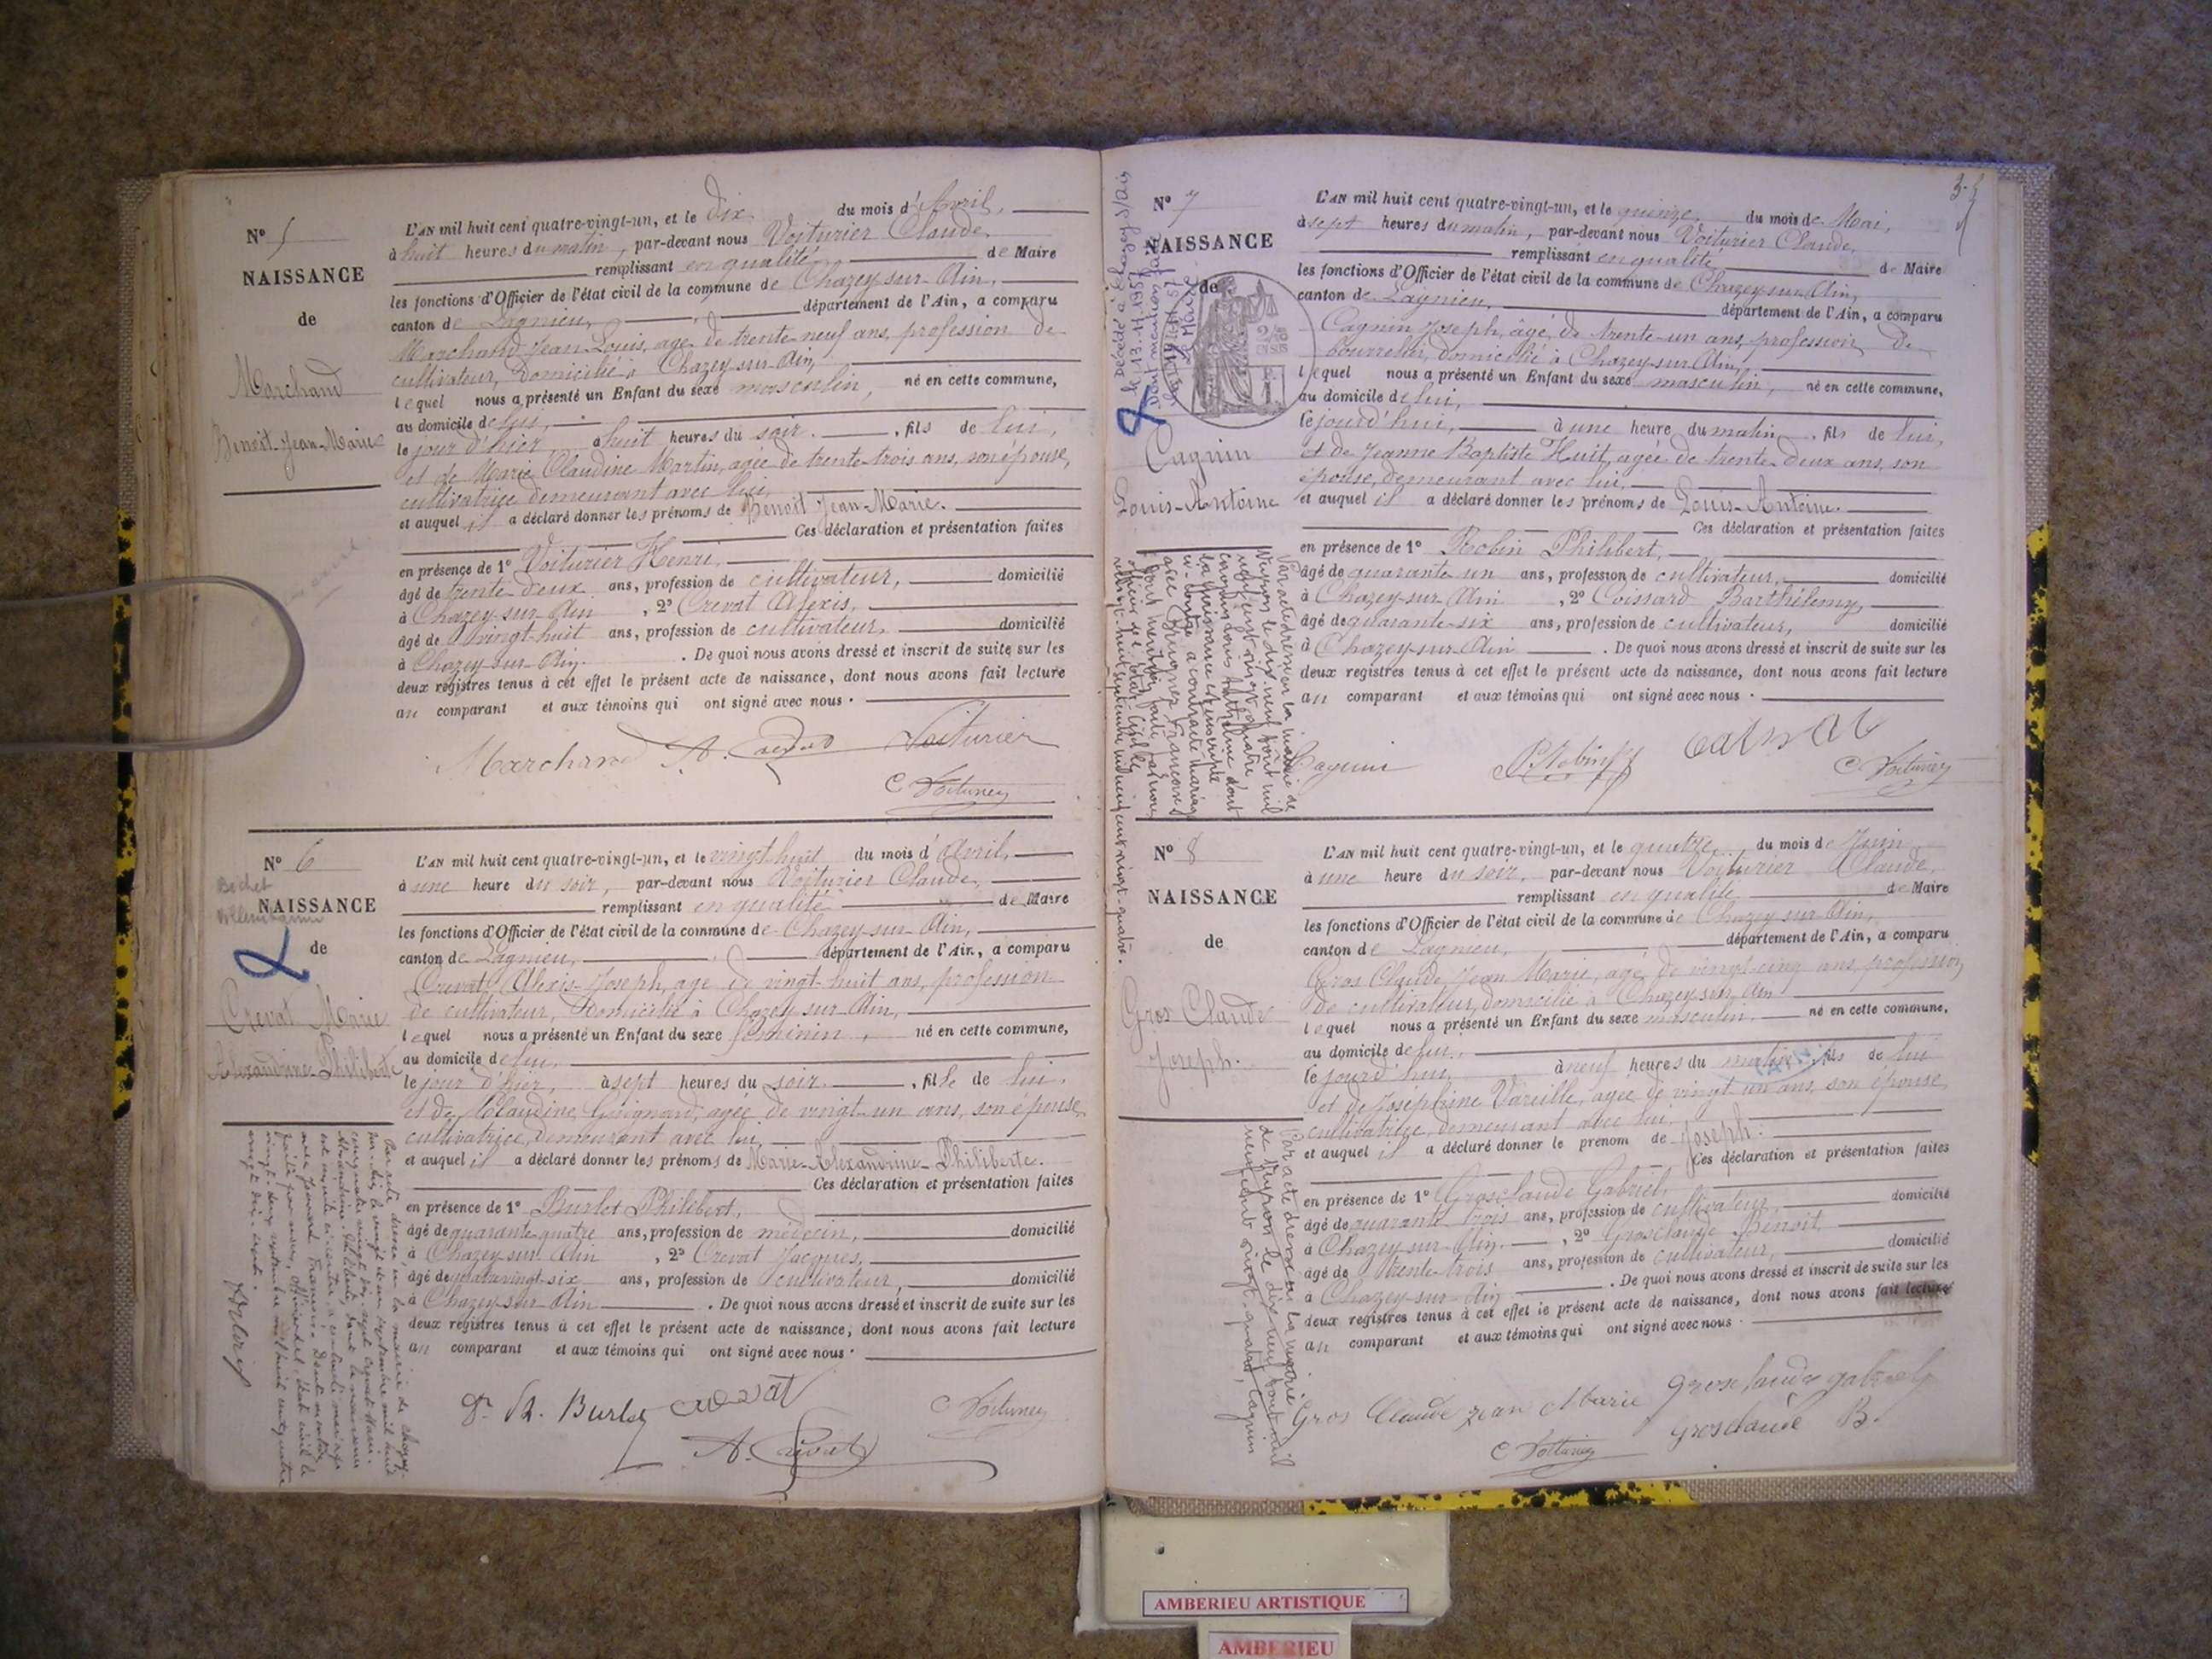 N° 5
NAISSANCE
de
Marchand
Benoît-Jean-Marie
L'AN mil huit cent quatre-vingt-un, et le dix du mois d'Avril,
à huit heures du matin, par-devant nous Voiturier Claude,
remplissant en qualité de Maire
les fonctions d'Officier de l'état civil de la commune de Chazey-sur-Ain,
canton de Lagnieu, département de l'Ain, a comparu
Marchand Jean-Louis, âgé de trente-neuf ans, profession de
cultivateur, domicilié à Chazey-sur-Ain,
lequel nous a présenté un Enfant du sexe masculin, né en cette commune,
au domicile de lui,
le jour d'hier à huit heures du soir, fils de lui,
et de Marie Claudine Martin, agée de trente-trois ans, son épouse,
cultivatrice demeurant avec lui,
et auquel il a déclaré donner les prénoms de Benoît Jean-Marie.
Ces déclaration et présentation faites
en présence de 1° Voiturier Henri,
âgé de trente-deux ans, profession de cultivateur, domicilié
à Chazey-sur-Ain, 2° Crevat Alexis,
âgé de vingt-huit ans, profession de cultivateur, domicilié
à Chazey-sur-Ain. De quoi nous avons dressé et inscrit de suite sur les
deux registres tenus à cet effet le présent acte de naissance, dont nous avons fait lecture
au comparant et aux témoins qui ont signé avec nous.
Marchand A. Crevat Voiturier
C Voiturier
N° 6
NAISSANCE
de
Crevat Marie
Alexandrine-Philiberte
L'AN mil huit cent quatre-vingt-un, et le vingt-huit du mois d'Avril,
à une heure du soir, par-devant nous Voiturier Claude,
remplissant en qualité de Maire
les fonctions d'Officier de l'état civil de la commune de Chazey-sur-Ain,
canton de Lagnieu, département de l'Ain, a comparu
Crevat Alexis-Joseph, âgé de vingt-huit ans, profession
de cultivateur, domicilié à Chazey sur Ain,
lequel nous a présenté un Enfant du sexe féminin, né en cette commune,
au domicile de lui,
le jour d'hier, à sept heures du soir, fille de lui,
et de Claudine Guignard, agée de vingt-un ans, son épouse,
cultivatrice, demeurant avec lui,
et auquel il a déclaré donner les prénoms de Marie-Alexandrine-Philiberte.
Ces déclaration et présentation faites
en présence de 1° Burlet Philibert,
âgé de quarante-quatre ans, profession de médecin, domicilié
à Chazey sur Ain, 2° Crevat Jacques,
âgé de quatre vingt-six ans, profession de cultivateur, domicilié
à Chazey-sur-Ain. De quoi nous avons dressé et inscrit de suite sur les
deux registres tenus à cet effet le présent acte de naissance, dont nous avons fait lecture
au comparant et aux témoins qui ont signé avec nous.
Dr Ph. Burlet Crevat C Voiturier
A. Crevat
N° 7
NAISSANCE
de
Cagnin
Louis-Antoine
Décédé à Chazey s/Ain
le 13.11.1957
Le Maire
L'AN mil huit cent quatre-vingt-un, et le quinze, du mois de Mai,
à sept heures du matin, par-devant nous Voiturier Claude,
remplissant en qualité de Maire
les fonctions d'Officier de l'état civil de la commune de Chazey-sur-Ain,
canton de Lagnieu, département de l'Ain, a comparu
Cagnin Joseph, âgé de trente-un ans, profession de
bourrelier, domicilié à Chazey-sur-Ain,
lequel nous a présenté un Enfant du sexe masculin, né en cette commune,
au domicile de lui,
le jourd'hui, à une heure du matin, fils de lui,
et de Jeanne Baptiste Huit, agée de trente-deux ans, son
épouse, demeurant avec lui,
et auquel il a déclaré donner les prénoms de Louis-Antoine.
Ces déclaration et présentation faites
en présence de 1° Robin Philibert,
âgé de quarante-un ans, profession de cultivateur, domicilié
à Chazey-sur-Ain, 2° Coissard Barthélemy,
âgé de quarante-six ans, profession de cultivateur, domicilié
à Chazey-sur-Ain. De quoi nous avons dressé et inscrit de suite sur les
deux registres tenus à cet effet le présent acte de naissance, dont nous avons fait lecture
au comparant et aux témoins qui ont signé avec nous.
Cagnin P Robin
C Voiturier
N° 8
NAISSANCE
de
Gros Claude
Joseph.
L'AN mil huit cent quatre-vingt-un, et le quatre du mois de Juin
à une heure du soir, par-devant nous Voiturier Claude,
remplissant en qualité de Maire
les fonctions d'Officier de l'état civil de la commune de Chazey sur Ain,
canton de Lagnieu, département de l'Ain, a comparu
Gros Claude Jean Marie, âgé de vingt-cinq ans, profession
de cultivateur, domicilié à Chazey-sur-Ain
lequel nous a présenté un Enfant du sexe masculin, né en cette commune,
au domicile de lui,
le jourd'hui, à neuf heures du matin, fils de lui
et de Joséphine Vareille, agée de vingt un ans, son épouse,
cultivatrice, demeurant avec lui,
et auquel il a déclaré donner le prénom de Joseph.
Ces déclaration et présentation faites
en présence de 1° Grosclaude Gabriel,
âgé de quarante trois ans, profession de cultivateur, domicilié
à Chazey-sur-Ain, 2° Grosclaude Benoit
âgé de trente-trois ans, profession de cultivateur, domicilié
à Chazey-sur-Ain. De quoi nous avons dressé et inscrit de suite sur les
deux registres tenus à cet effet le présent acte de naissance, dont nous avons fait lecture
au comparant et aux témoins qui ont signé avec nous.
Gros Claude jean Marie Grosclaude gabriel
C Voiturier grosclaude B.
AMBERIEU ARTISTIQUE
AMBERIEU